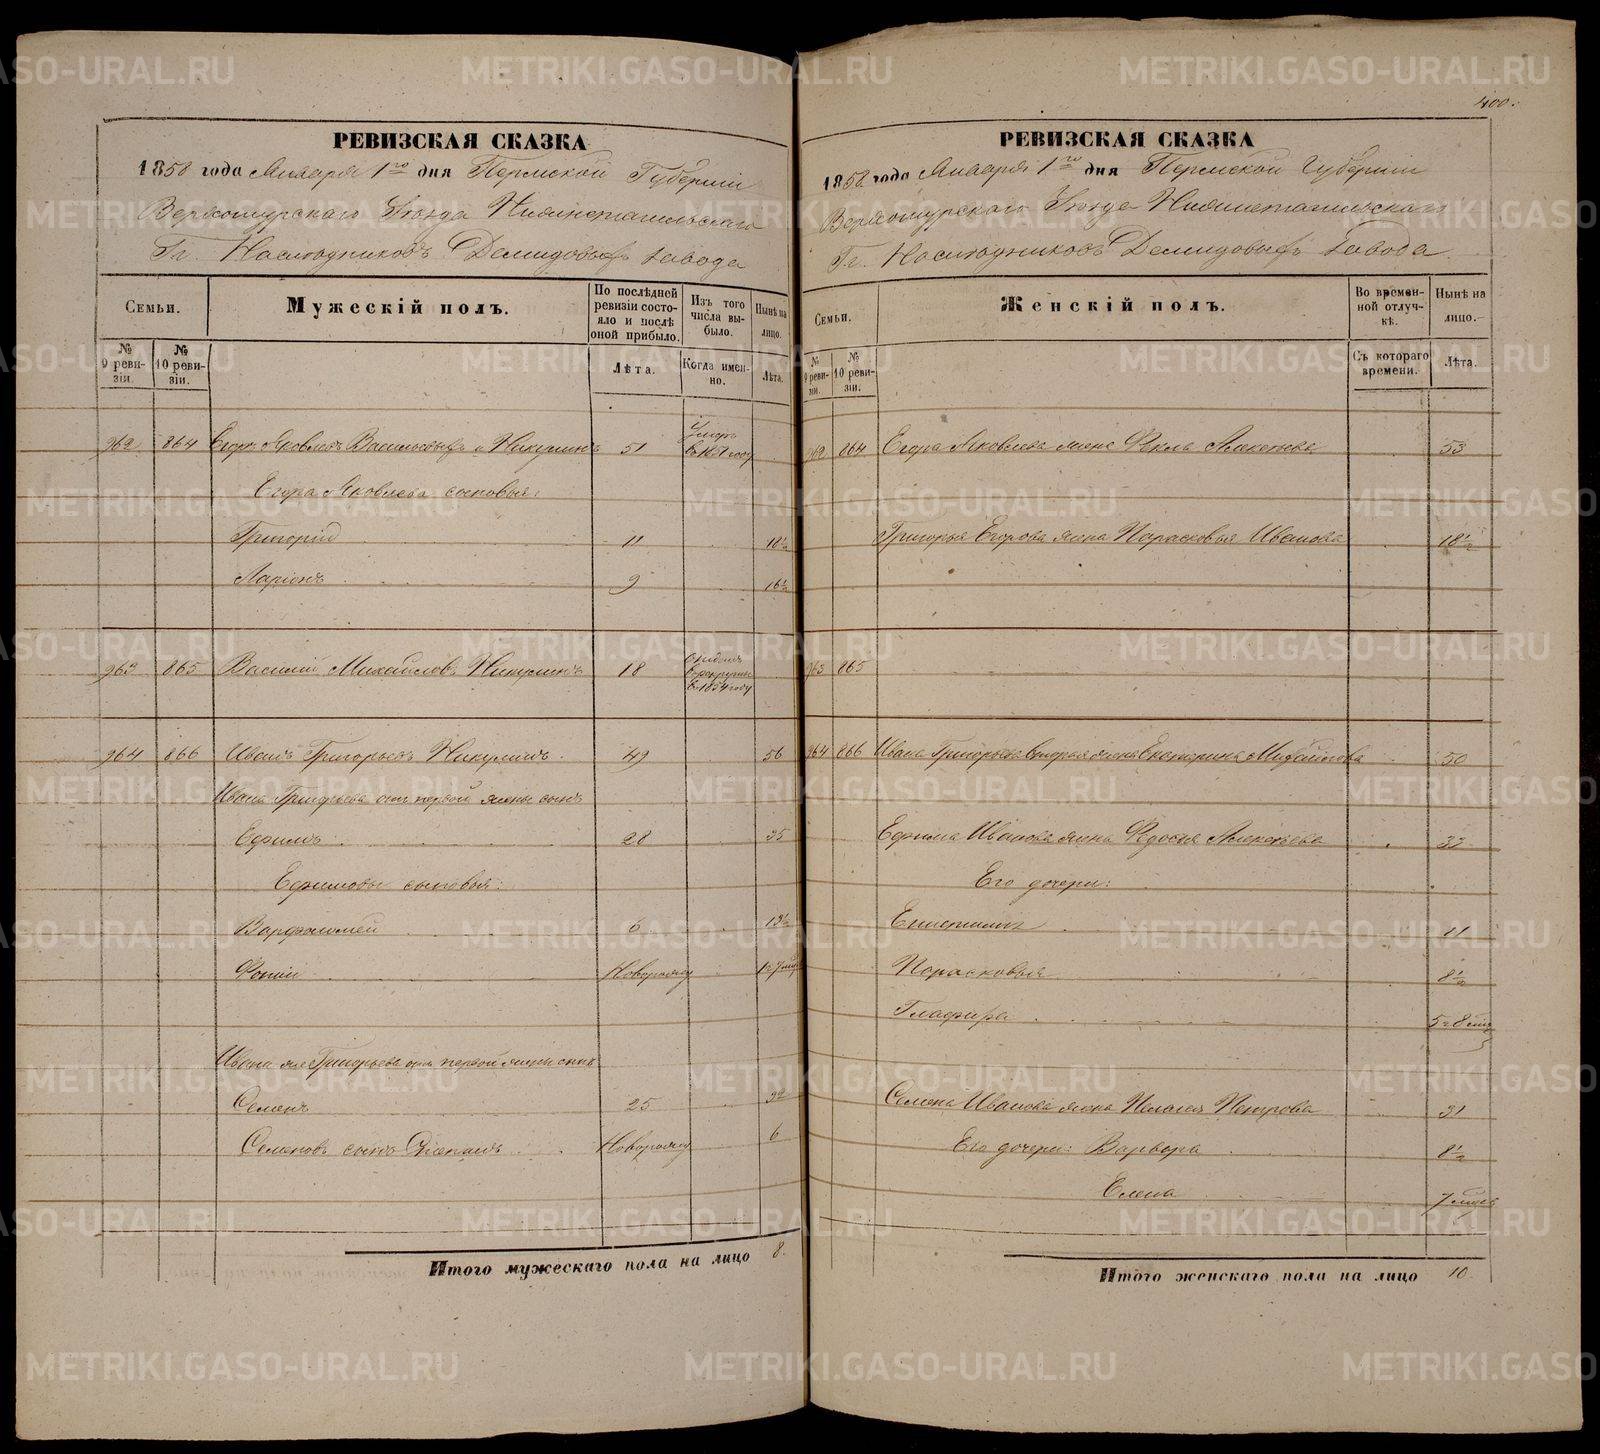 400.
РЕВИЗСКАЯ СКАЗКА
1858 года Января 1го дня Пермской Губерніи
Верхотурскаго Уѣзда Нижнетагильскаго
Гг. Наслѣдниковъ Демидовыхъ завода
Семьи.
Мужескій полъ.
По послѣдней ревизіи состояло и послѣ оной прибыло.
Изъ того числа выбыло.
Нынѣ на лицо.
№ 9 ревизіи.
№ 10 ревизіи.
Лѣта.
Когда именно.
Лѣта.
962 864 Егоръ Яковлевъ Васильевыхъ и Никулинъ 51 Умеръ въ 1851 году
Егора Яковлева сыновья:
Григорій 11 18½
Ларіонъ 9 16½
963 865 Василій Михайловъ Никулинъ 18 отданъ въ рекруты въ 1854 году
964 866 Иванъ Григорьевъ Никулинъ 49 56
Ивана Григорьева отъ первой жены сынъ
Ефимъ 28 35
Ефимовы сыновья:
Варфоломей 6 13½
Фотій Новорожд
Ивана же Григорьева отъ первой жены сынъ
Семенъ 25 32
Семеновъ сынъ Степанъ Новорожд 6
Итого мужескаго пола на лицо 8.
РЕВИЗСКАЯ СКАЗКА
1858 года Января 1го дня Пермской Губерніи
Верхотурскаго Уѣзда Нижнетагильскаго
Гг. Наслѣдниковъ Демидовыхъ завода.
Семьи.
Женскій полъ.
Во временной отлучкѣ.
Нынѣ на лицо.
№ 9 ревизіи.
№ 10 ревизіи.
Съ котораго времени.
Лѣта.
962 864 Егора Яковлева жена Фекла 53
Григорья Егорова жена Парасковья Иванова 18½
963 865
964 866 Ивана Григорьева вторая жена Екатерина Михайлова 50
Ефима Иванова жена Федосья Алексѣева 33
Его дочери:
11
Парасковья 8½
Глафира 5 и 8 мѣс
Семена Иванова жена Пелагея Петрова 31
Его дочери: Варвара 8½
Елена 7 мѣс
Итого женскаго пола на лицо 10.
METRIKI.GASO-URAL.RU